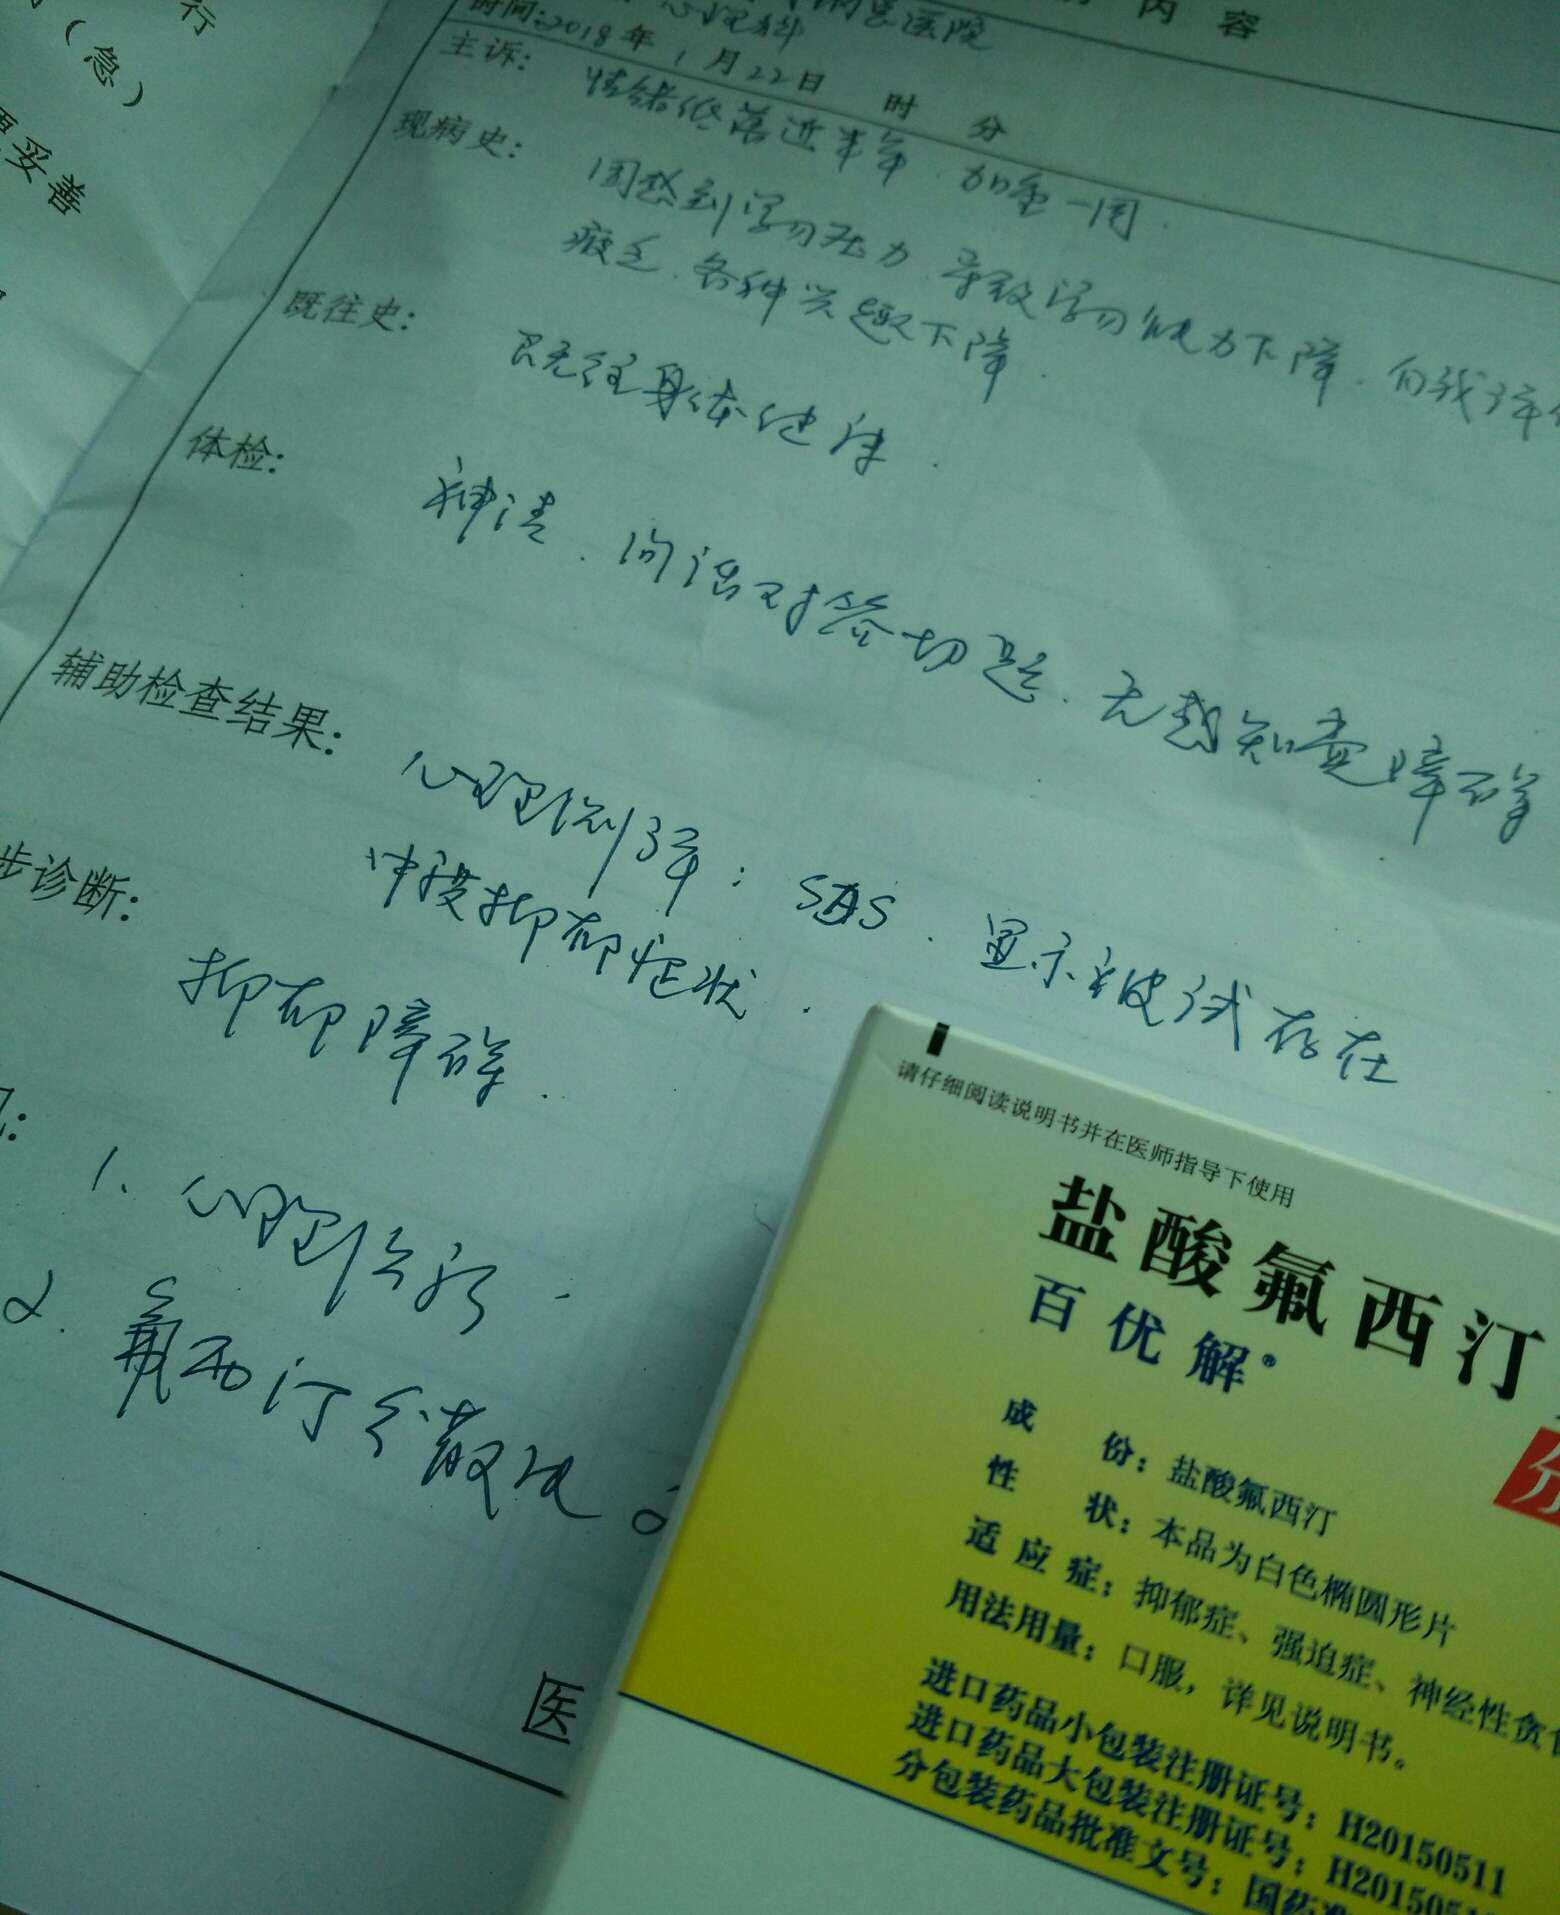 行
（急）
妥善
内 容
医院
心理科
时间:2018年1月22日 时 分
主诉: 情绪低落近半年.加重一周.
现病史: 因感到学习压力.导致学习能力下降.自我评
疲乏.各种兴趣下降.
既往史: 既往身体健康.
体检: 神清.问话对答切题.无感知觉障碍
辅助检查结果: 心理测评:SDS.显示被试存在
中度抑郁症状.
步诊断: 抑郁障碍.
1.心理治疗.
2.氟西汀分散片
医
请仔细阅读说明书并在医师指导下使用
盐酸氟西汀
百优解®
分
成 份：盐酸氟西汀
性 状：本品为白色椭圆形片
适应症：抑郁症、强迫症、神经性贪
用法用量：口服，详见说明书。
进口药品小包装注册证号：H20150511
进口药品大包装注册证号：H201505
分包装药品批准文号：国药